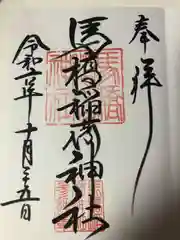 奉拝
馬橋稲荷神社
令和二年十月二十五日